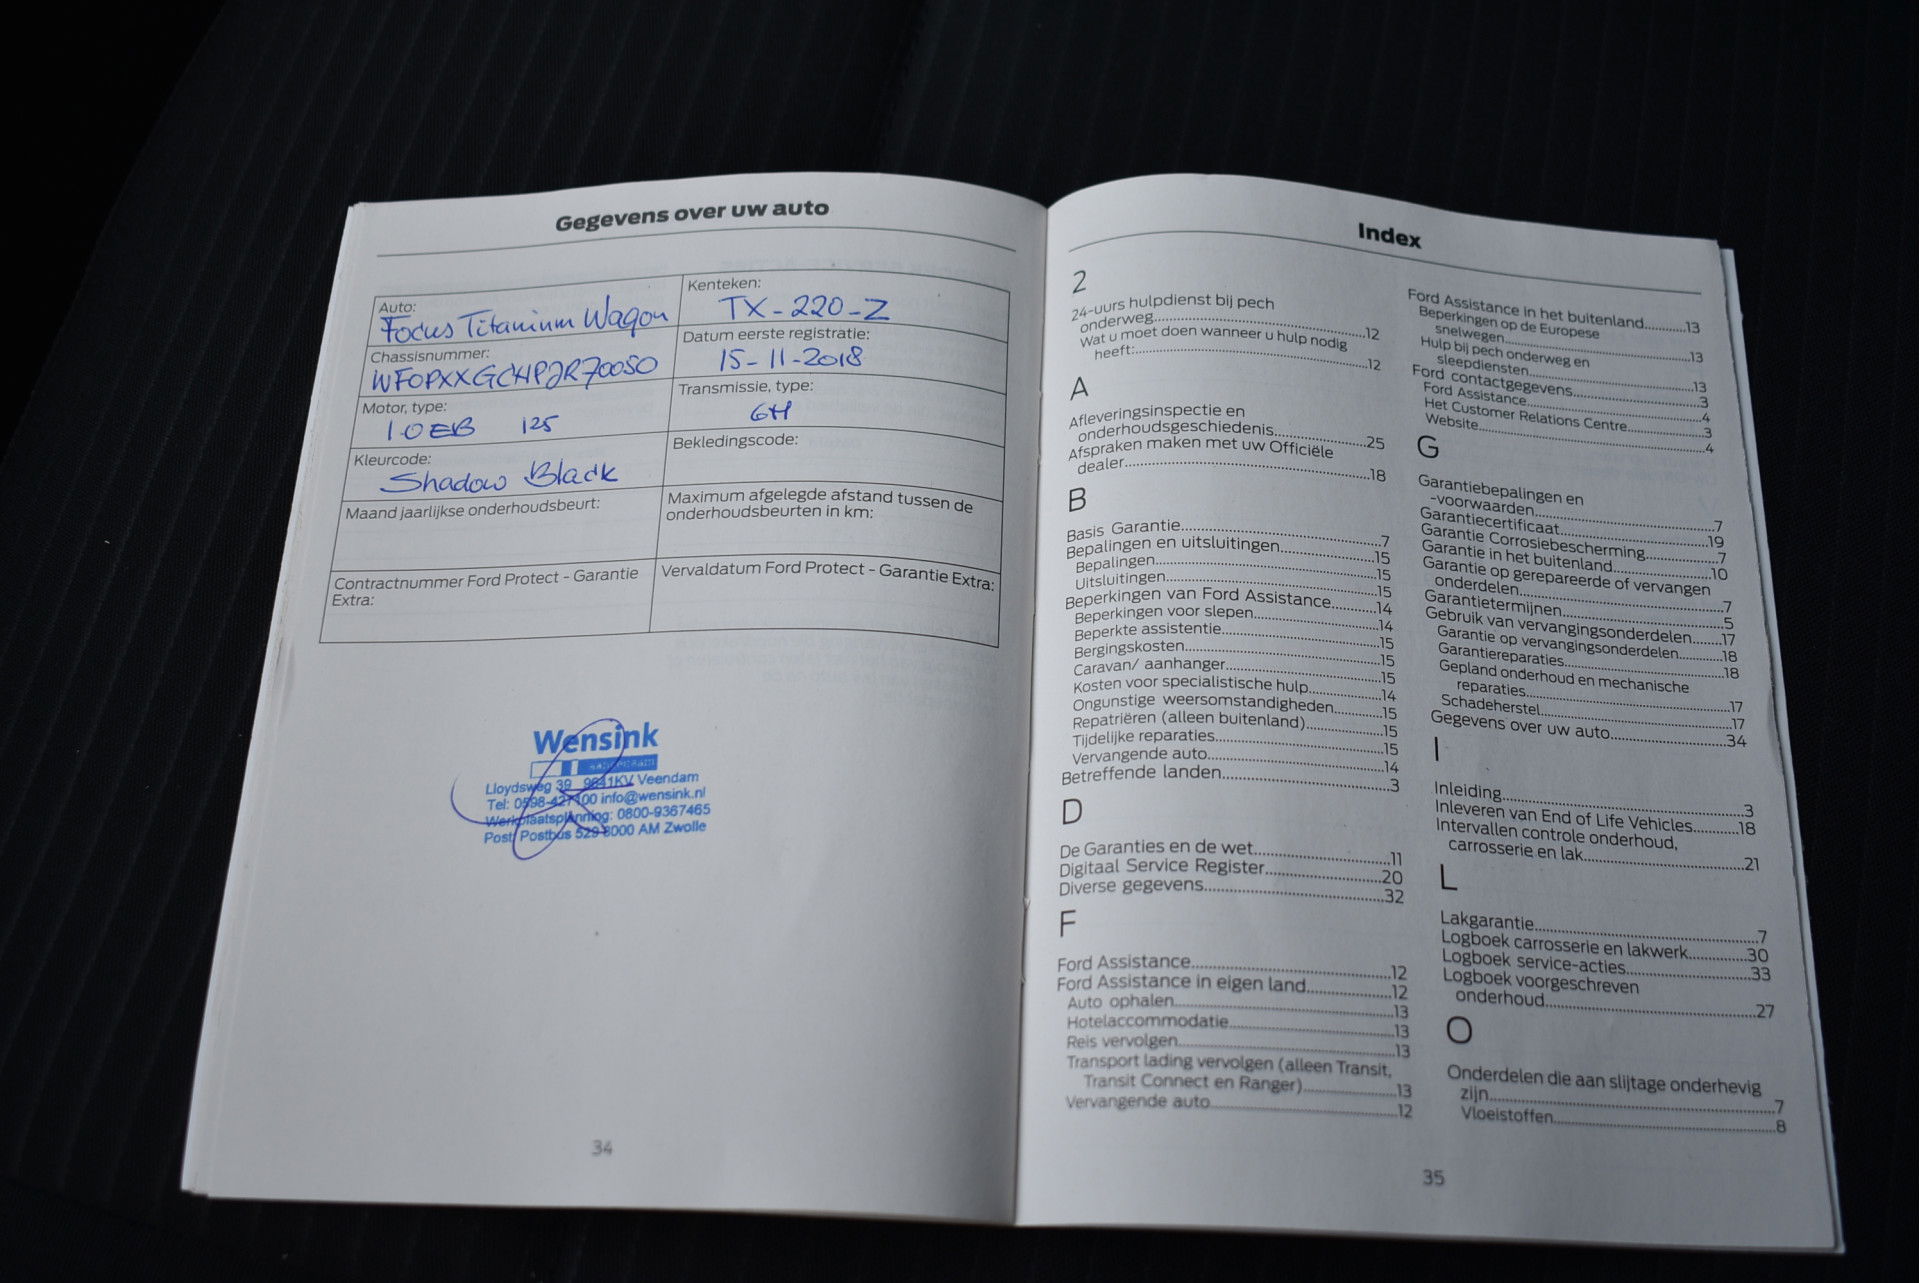 Gegevens over uw auto
Auto:
Focus Titanium Wagon
Kenteken:
TX-220-Z
Chassisnummer:
WF0PXXGCHPJR70050
Datum eerste registratie:
15-11-2018
Motor, type:
1.0 EB 125
Transmissie, type:
6H
Kleurcode:
Shadow Black
Bekledingscode:
Maand jaarlijkse onderhoudsbeurt:
Maximum afgelegde afstand tussen de
onderhoudsbeurten in km:
Contractnummer Ford Protect - Garantie
Extra:
Vervaldatum Ford Protect - Garantie Extra:
Wensink
Lloydsweg 39 9641KV Veendam
Tel: 0598-427100 info@wensink.nl
Werkplaatsplanning: 0800-9367465
Post: Postbus 529 8000 AM Zwolle
34
Index
2
24-uurs hulpdienst bij pech
onderweg..........12
Wat u moet doen wanneer u hulp nodig
heeft:..........12
A
Afleveringsinspectie en
onderhoudsgeschiedenis..........25
Afspraken maken met uw Officiële
dealer..........18
B
Basis Garantie..........7
Bepalingen en uitsluitingen..........15
Bepalingen..........15
Uitsluitingen..........15
Beperkingen van Ford Assistance..........14
Beperkingen voor slepen..........14
Beperkte assistentie..........15
Bergingskosten..........15
Caravan/ aanhanger..........15
Kosten voor specialistische hulp..........14
Ongunstige weersomstandigheden..........15
Repatriëren (alleen buitenland)..........15
Tijdelijke reparaties..........15
Vervangende auto..........14
Betreffende landen..........3
D
De Garanties en de wet..........11
Digitaal Service Register..........20
Diverse gegevens..........32
F
Ford Assistance..........12
Ford Assistance in eigen land..........12
Auto ophalen..........13
Hotelaccommodatie..........13
Reis vervolgen..........13
Transport lading vervolgen (alleen Transit,
Transit Connect en Ranger)..........13
Vervangende auto..........12
Ford Assistance in het buitenland..........13
Beperkingen op de Europese
snelwegen..........13
Hulp bij pech onderweg en
sleepdiensten..........13
Ford contactgegevens..........3
Ford Assistance..........4
Het Customer Relations Centre..........3
Website..........4
G
Garantiebepalingen en
-voorwaarden..........7
Garantiecertificaat..........19
Garantie Corrosiebescherming..........7
Garantie in het buitenland..........10
Garantie op gerepareerde of vervangen
onderdelen..........7
Garantietermijnen..........5
Gebruik van vervangingsonderdelen..........17
Garantie op vervangingsonderdelen..........18
Garantiereparaties..........18
Gepland onderhoud en mechanische
reparaties..........17
Schadeherstel..........17
Gegevens over uw auto..........34
I
Inleiding..........3
Inleveren van End of Life Vehicles..........18
Intervallen controle onderhoud,
carrosserie en lak..........21
L
Lakgarantie..........7
Logboek carrosserie en lakwerk..........30
Logboek service-acties..........33
Logboek voorgeschreven
onderhoud..........27
O
Onderdelen die aan slijtage onderhevig
zijn..........7
Vloeistoffen..........8
35